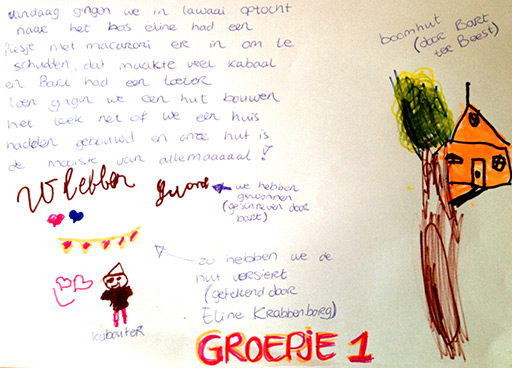 vandaag gingen we in lawaai optocht
naar het bos eline had een
flesje met macaroni er in om te
schudden, dat maakte veel kabaal
en Bart had een toeter
toen gingen we een hut bouwen
het leek net of we een huis
hadden gebouwd en onze hut is
de mooiste van allemaaaaal!
We hebben gewonn
we hebben
gewonnen
(geschreven door
bart)
zo hebben we de
hut versiert
(getekend door
Eline Krabbenborg)
kabouter
GROEPJE 1
boomhut
(door Bart
ter Beest)